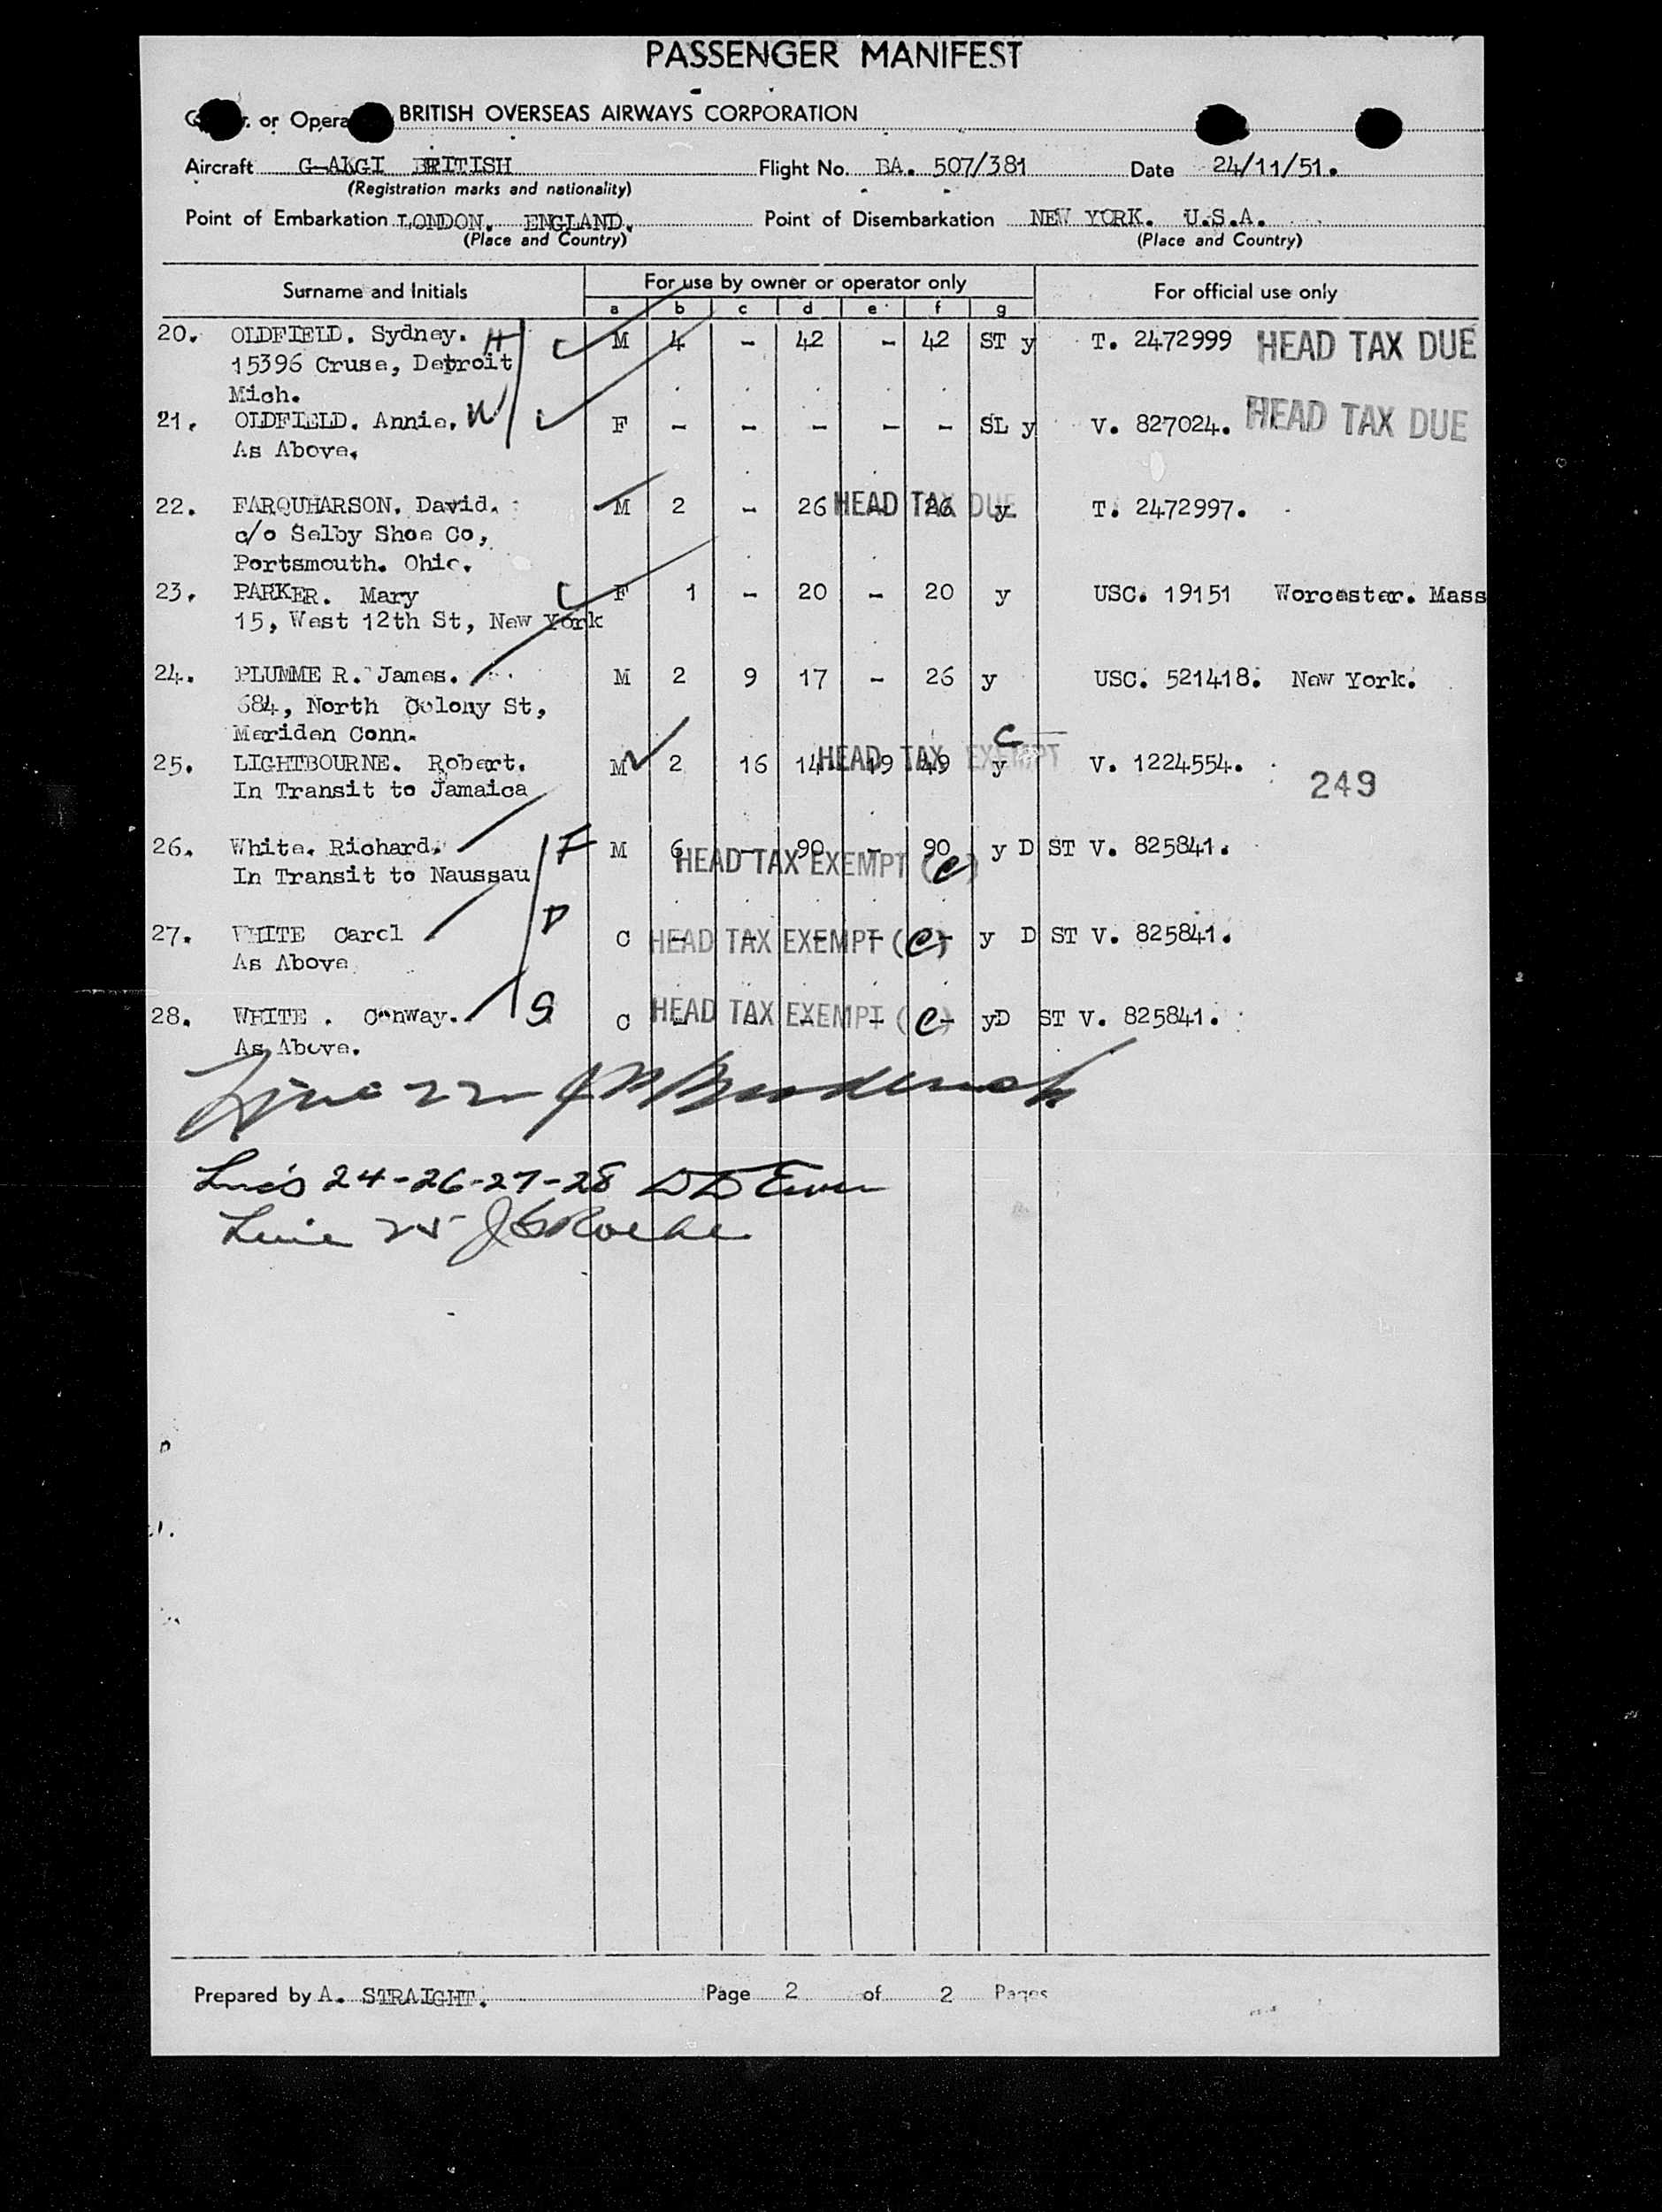 PASSENGER MANIFEST
or Opera BRITISH OVERSEAS AIRWAYS CORPORATION
Aircraft G-AKGI BRITISH Flight No. BA. 507/381 Date 24/11/51.
(Registration marks and nationality)
Point of Embarkation LONDON. ENGLAND. Point of Disembarkation NEW YORK. U.S.A.
(Place and Country) (Place and Country)
Surname and Initials For use by owner or operator only For official use only
a b c d e f g
20. OLDFIELD. Sydney. H M 4 - 42 - 42 ST y T. 2472999 HEAD TAX DUE
15396 Cruse, Detroit
Mich.
21. OLDFIELD. Annie. W F - - - - - SL y V. 827024. HEAD TAX DUE
As Above.
22. FARQUHARSON. David. M 2 - 26 - 26 y T. 2472997. HEAD TAX DUE
c/o Selby Shoe Co,
Portsmouth. Ohio.
23. PARKER. Mary C F 1 - 20 - 20 y USC. 19151 Worcester. Mass
15, West 12th St, New York
24. PLUMME R. James. M 2 9 17 - 26 y USC. 521418. New York.
684, North Colony St,
Meriden Conn.
C
25. LIGHTBOURNE. Robert. M 2 16 14 19 49 y V. 1224554. HEAD TAX EXEMPT
In Transit to Jamaica 249
26. White. Richard. F M 6 - 90 - 90 y D ST V. 825841.
In Transit to Naussau HEAD TAX EXEMPT (C)
27. WHITE Carol D C - - - - - y D ST V. 825841. HEAD TAX EXEMPT (C)
As Above
28. WHITE . Conway. S C - - - - - yD ST V. 825841. HEAD TAX EXEMPT (C)
As Above.
Line 22
Line's 24-26-27-28
Line 25 Roche
Prepared by A. STRAIGHT. Page 2 of 2 Pages